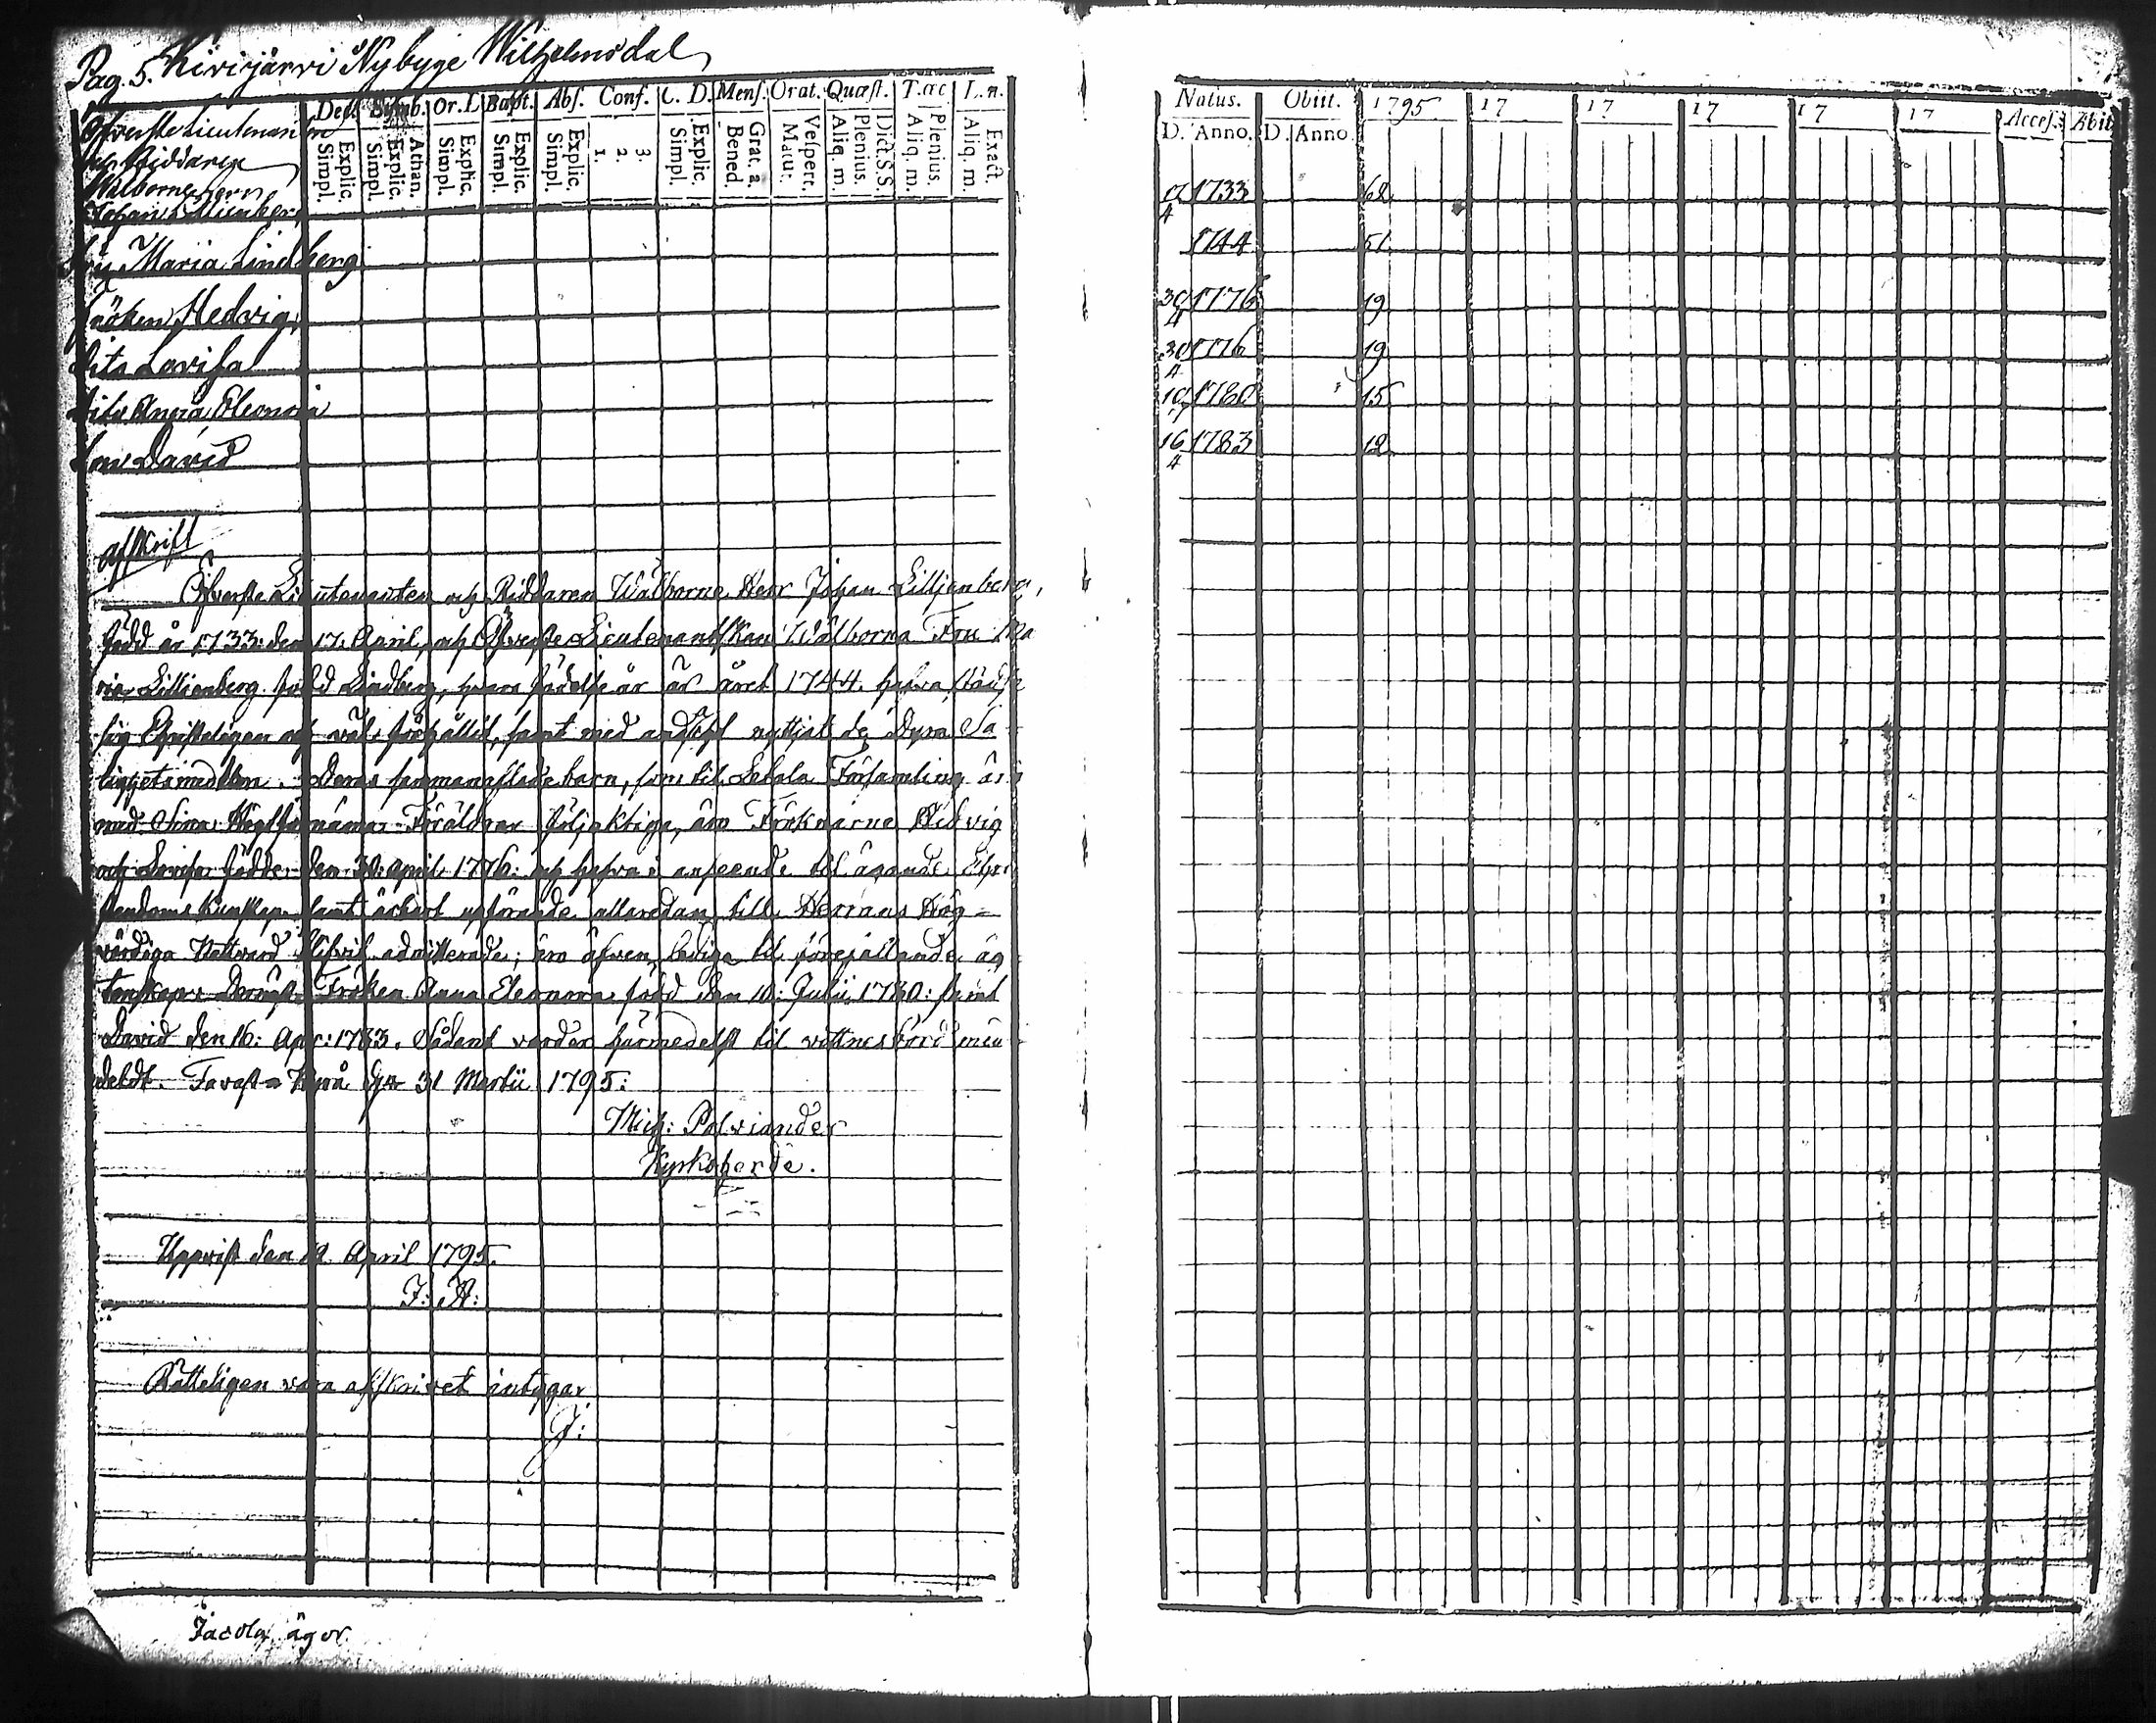 Pag. 5. Kivijärvi Nybyge Wilhelmsdal
Dec. Symb. Or. D. Bapt. Abs. Conf. C. D. Mens. Orat. Quæst. T. œc. L. n.
Explic. Simpl. Athan. Explic. Simpl. Explic. Simpl. Explic. Simpl. Explic. Simpl. 1. 2. 3. Explic. Simpl. Grat. a. Bened. Vespert. Matut. Dict. S. S. Plenius. Aliq. m. Plenius. Aliq. m. Exact. Aliq. m.
Öfverste Lieutenanten
och Riddaren
Wälborne Herr
Johan
Fru Maria Lindberg
Fröken Hedvig
Dito Lovisa
Dito Anna Eleonora
Son David
Afskrift
Öfverste Lieutenanten och Riddaren Wälborne Herr Johan Lilljenberg,
född år 1733: den 17. April, och Öfverste Lieutenantskan Wälborna Fru Ma
ria Lillienberg född Lindberg, hvars födelse år är året 1744. hafva städse
sig Christeligen och väl förhållit, samt med andackt nyttjat de Dyra Sa
lighetsmedlen. Deras sammanaflade barn, som til Församling äro
med Sina Föräldrar följaktige, äro Fröknarne Hedvig
och Lovisa födde den 30. April 1776: och hafva i anseende til ägande Chri
stendoms kunskap samt ärbart upförande allaredan till Herrans Hög-
värdiga Nattvard blifvit admitterade; äro äfven lediga til förefallande äg
tenskap. Dernäst Fröken Anna Eleonora född den 10: Julii 1780: samt
David den 16: Apr: 1783. Sådant varder härmedelst til vittnesbörd med
deldt. Tavast-Kyrö den 31 Martii 1795:
Mich: Polviander
Kyrkoherde.
Uppvist den 19 April 1795.
J: A:
Rätteligen vara afskrivet intygar
J:
Jacola ägor
Natus. Obiit. 1795 17 17 17 17 17 Acces. Abit
D. Anno. D. Anno.
17/4 1733 62
1744 51
30/4 1776 19
30/4 1776 19
10/7 1780 15
16/4 1783 12